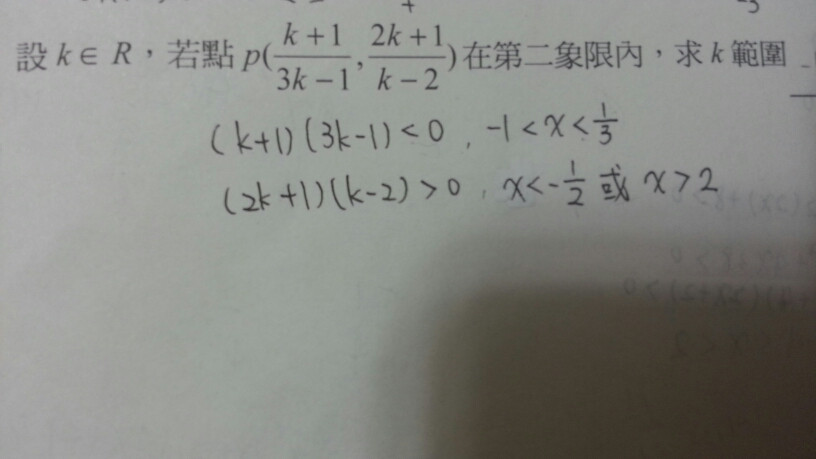 設 k ∈ R，若點 p(\frac{k+1}{3k-1}, \frac{2k+1}{k-2}) 在第二象限內，求 k 範圍
(k+1)(3k-1)<0, -1<x<\frac{1}{3}
(2k+1)(k-2)>0, x<-\frac{1}{2} 或 x>2